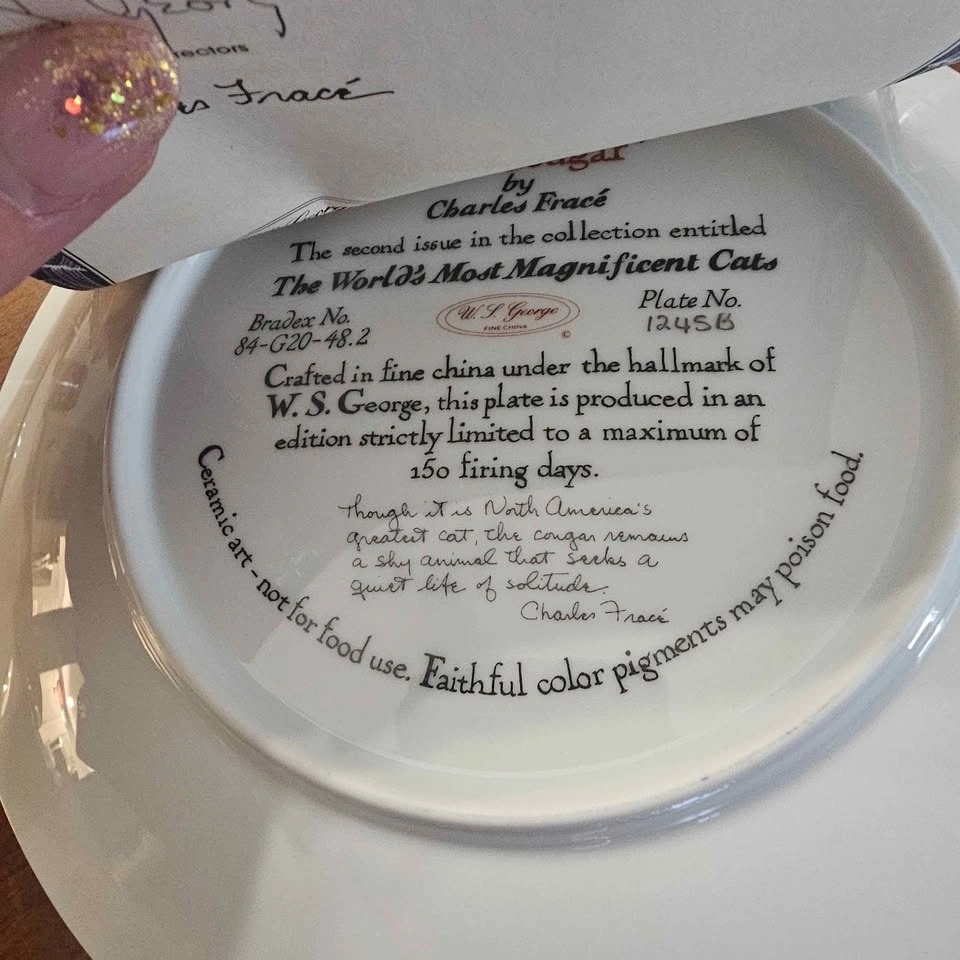 rectors
Fracé
by
Charles Fracé
The second issue in the collection entitled
The World's Most Magnificent Cats
Bradex No.
84-G20-48.2
W. S. George
FINE CHINA
©
Plate No.
1245B
Crafted in fine china under the hallmark of
W. S. George, this plate is produced in an
edition strictly limited to a maximum of
150 firing days.
Though it is North America's
greatest cat, the cougar remains
a shy animal that seeks a
quiet life of solitude.
Charles Fracé
Ceramic art - not for food use. Faithful color pigments may poison food.